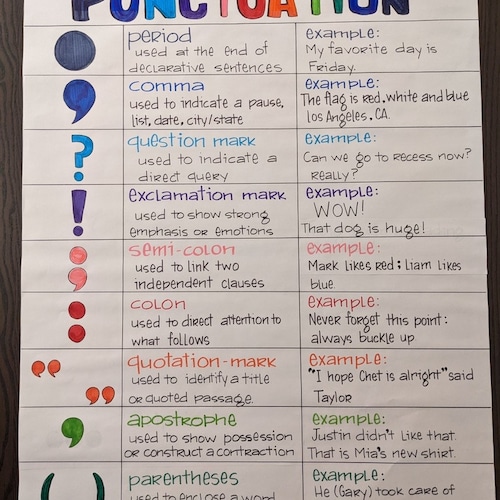 PUNCTUATION
period
used at the end of
declarative sentences
example:
My favorite day is
Friday.
comma
used to indicate a pause,
list, date, city/state
example:
The flag is red, white and blue
los Angeles, CA.
question mark
used to indicate a
direct query
example:
Can we go to recess now?
Really?
exclamation mark
used to show strong
emphasis or emotions
example:
WOW!
That dog is huge!
semi-colon
used to link two
independent clauses
example:
Mark likes red; liam likes
blue
colon
used to direct attention to
what follows
example:
Never forget this point:
always buckle up
quotation-mark
used to identify a title
or quoted passage.
example:
"I hope Chet is alright" said
Taylor
apostrophe
used to show possession
or construct a contraction
example:
Justin didn't like that.
That is Mia's new shirt.
parentheses
used to enclose a word
example:
He (Gary) took care of